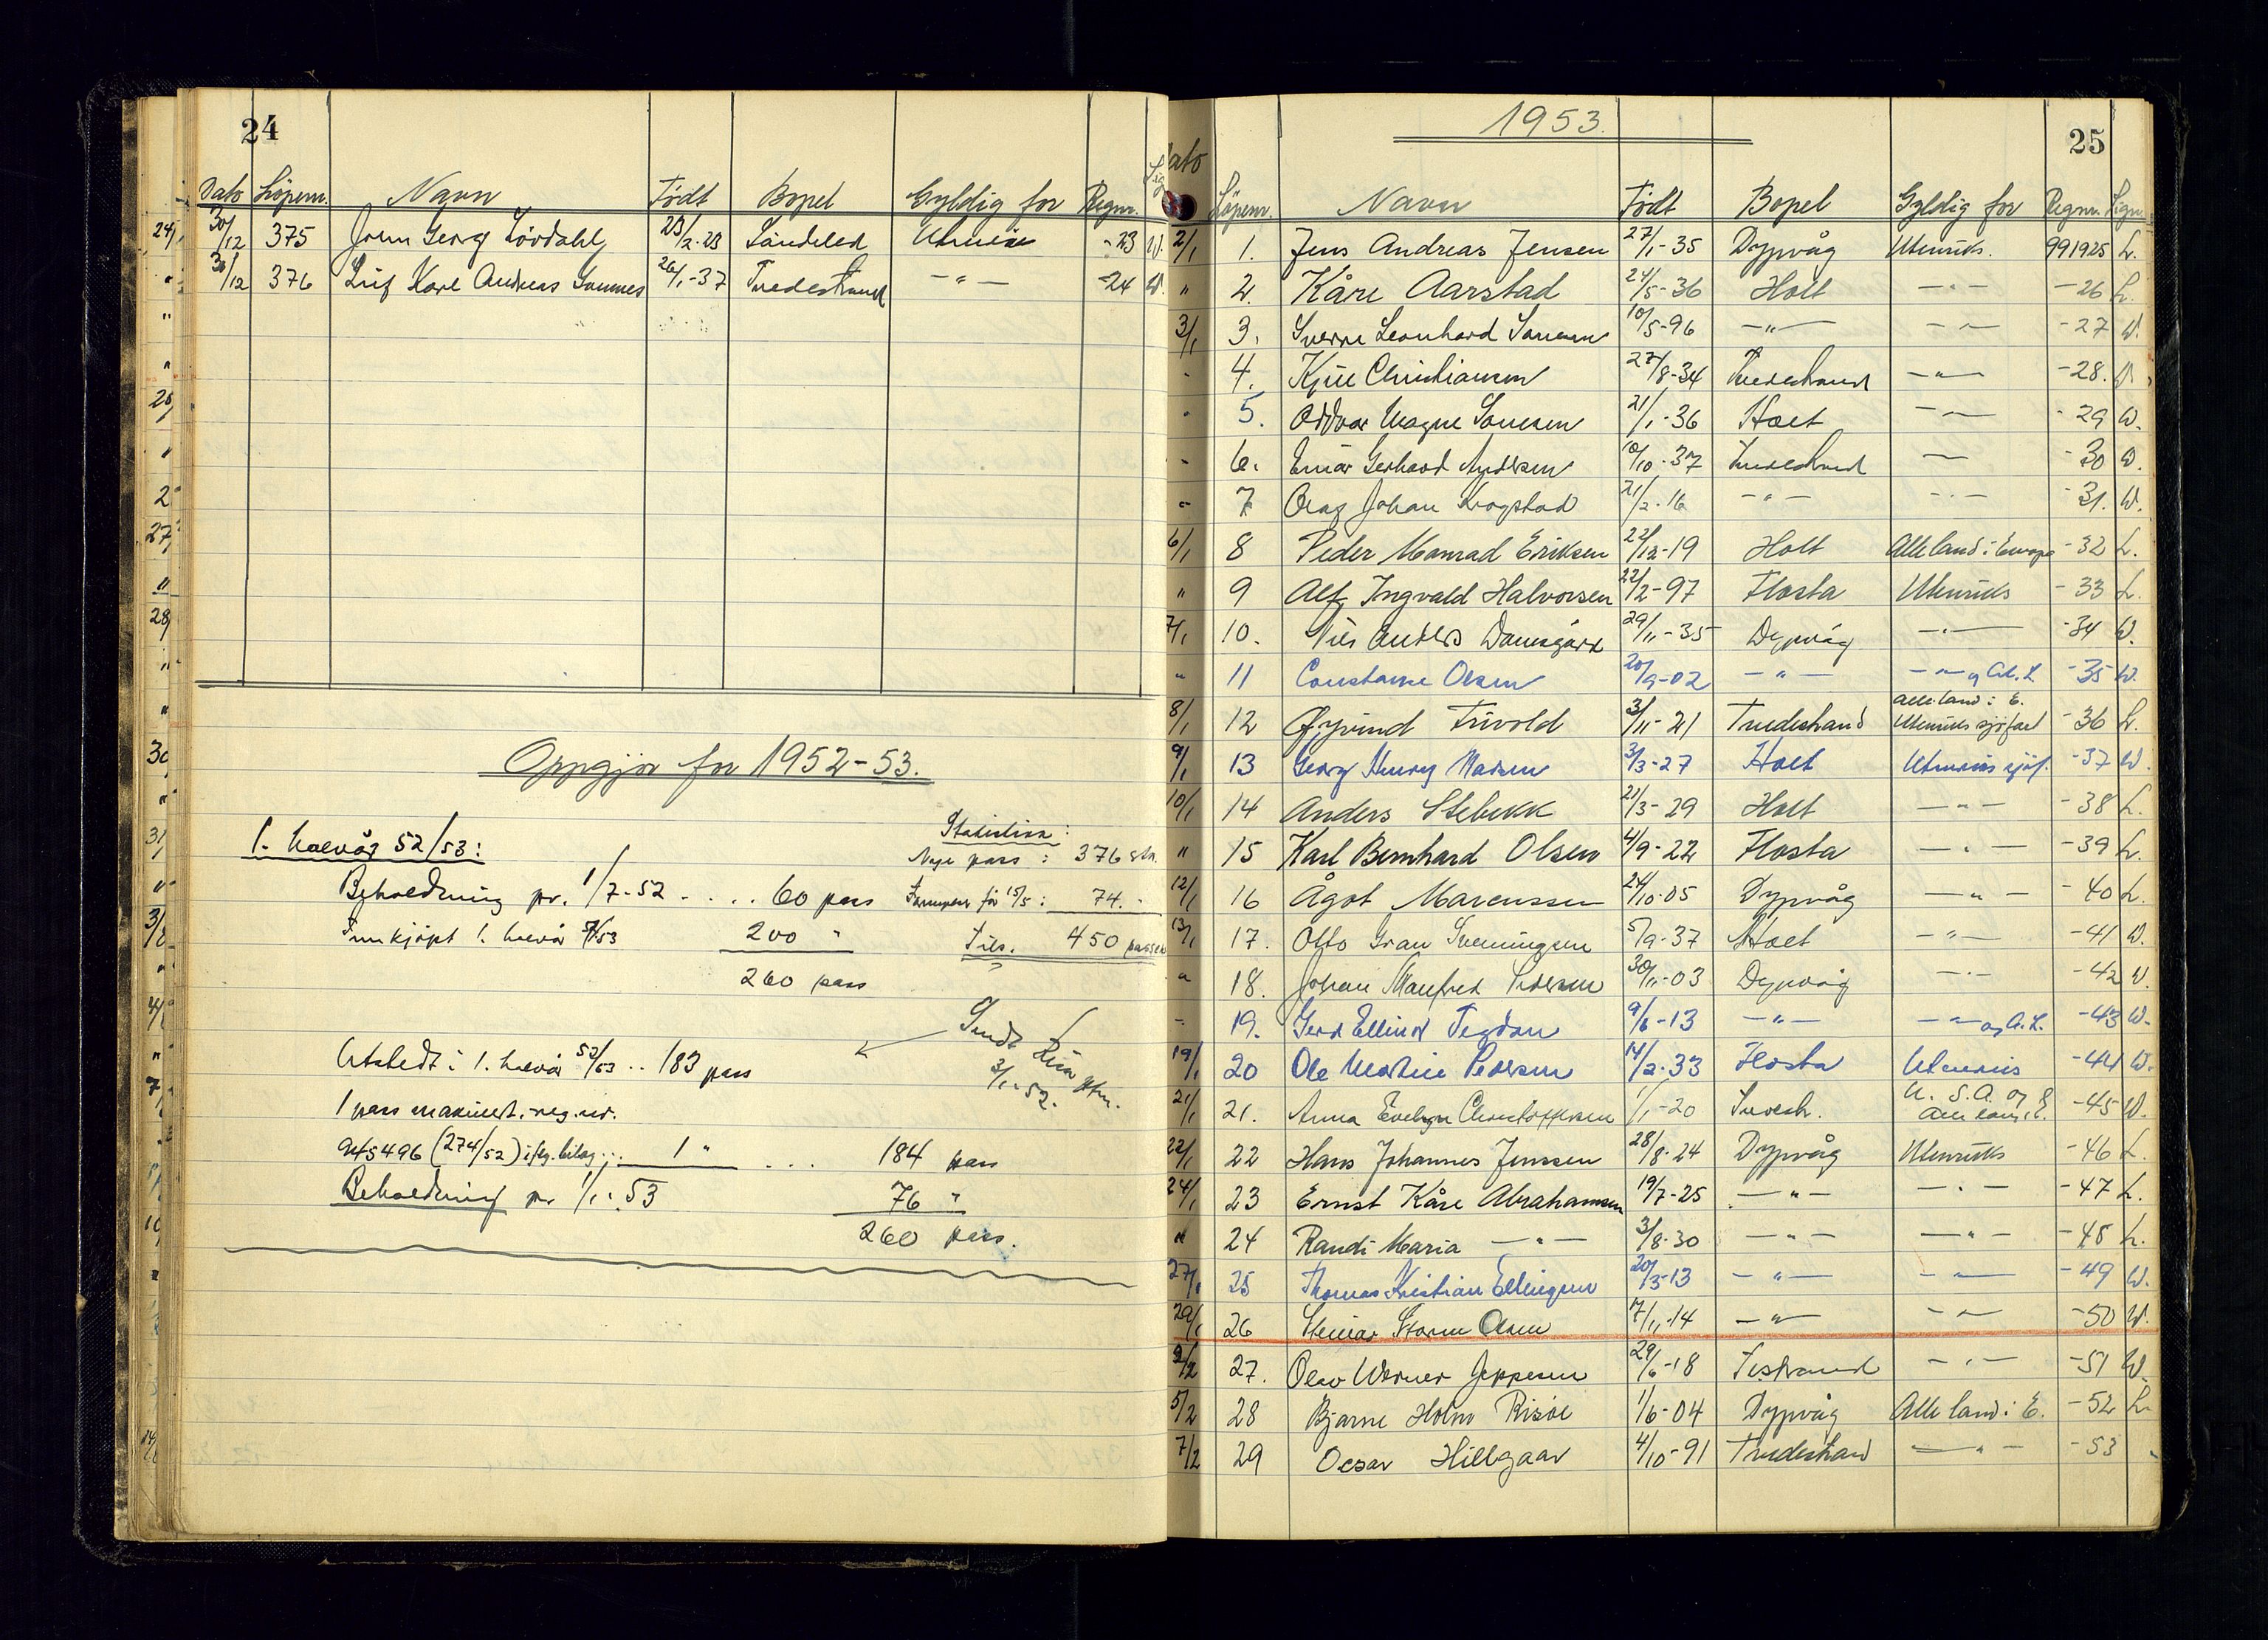 24
Dato Löpenr. Navn Födt Bopel Gyldig for Regnr. Sig
30/12 375 John Georg Lövdahl 23/2-23 Söndeled Utenriks -23 W.
30/12 376 Leif Karl Andreas Sannes 26/1-37 Tvedestrand -"- -24 W.
Oppgjör for 1952-53.
1. halvår 52/53:
Statistikk:
Nye pass: 376 stk.
Beholdning pr. 1/7-52 .... 60 pass
for 15/5: 74.-
Innkjöpt 1. halvår 200 "
Tils. 450 passer
260 pass
Sendt
3/1-52.
Utstedt i 1. halvår 52/53 .. 183 pass
1 pass makulert. reg.nr.
945496 (274/52) ifg. bilag ... 1 " .... 184 pass
Beholdning pr 1/1-53 76 "
260 pass.
1953.
25
Dato Löpenr. Navn Födt Bopel Gyldig for Regnr. Sign.
2/1 1. Jens Andreas Jensen 27/1-35 Dypvåg Utenriks. 991925 L.
" 2. Kåre Aarstad 24/5-36 Holt -"- -26 L.
3/1 3. Sverre Leonhard Sørensen 10/5-96 -"- -"- -27 W.
" 4. Kjell Christiansen 27/8-34 Tvedestrand -"- -28. W.
" 5. Oddvar Magne Sørensen 21/1-36 Holt -"- -29 W.
" 6. Einar Gerhard Andersen 10/10-37 Tvedestrand -"- -30 W.
" 7 Olaf Johan Krogstad 21/2-16 -"- -"- -31. W.
6/1 8 Peder Monrad Eriksen 22/12-19 Holt Alle land i Europa -32 L.
" 9 Alf Ingvald Halvorsen 22/2-97 Flosta Utenriks -33 L.
7/1 10. Nils Anders Damsgård 29/11-35 Dypvåg -"- -34 W.
" 11 Constanse Olsen 20/9-02 -"- -"- og -35 W.
8/1 12 Øyvind Trivold 3/11-21 Tvedestrand Alle land i E. Utenriks sjöfart -36 L.
9/1 13 Georg Henry Madsen 3/3-27 Holt Utenriks sjöf. -37 W.
10/1 14 Anders Stebekk 21/3-29 Holt -"- -38 L.
" 15 Karl Bernhard Olsen 4/9-22 Flosta -"- -39 L.
12/1 16 Ågot Marcussen 24/10-05 Dypvåg -"- -40 L.
13/1 17. Otto Gran Svenningsen 5/9-37 Holt -"- -41 W.
" 18. Johan Manfred Pedersen 30/11-03 Dypvåg -"- -42 W.
" 19. Gerd Ellinor Tegdan 9/6-13 -"- -"- og A.L. -43 W.
19/1 20 Ole Martin Pedersen 14/2-33 Flosta Utenriks -44 W.
21/1 21. Anna Evelyn Christoffersen 1/1-20 Tvedestr. U.S.A. og alle land i E. -45 W.
22/1 22 Hans Johannes Jenssen 28/8-24 Dypvåg Utenriks -46 L.
24/1 23 Ernst Kåre Abrahamsen 19/7-25 -"- -"- -47 L.
" 24 Randi Maria -"- 3/8-30 -"- -"- -48 L.
27/1 25 Thomas Kristian Ellingsen 20/3-13 -"- -"- -49 W.
29/1 26 Steinar Storm Olsen 17/11-14 -"- -"- -50 W.
2/2 27. Olav Werner Jeppesen 29/6-18 T.strand -"- -51 W.
5/2 28 Bjarne Holm Risöe 1/6-04 Dypvåg Alle land i E. -52 L.
7/2 29 Oscar Hillgaar 4/10-91 Tvedestrand -"- -53